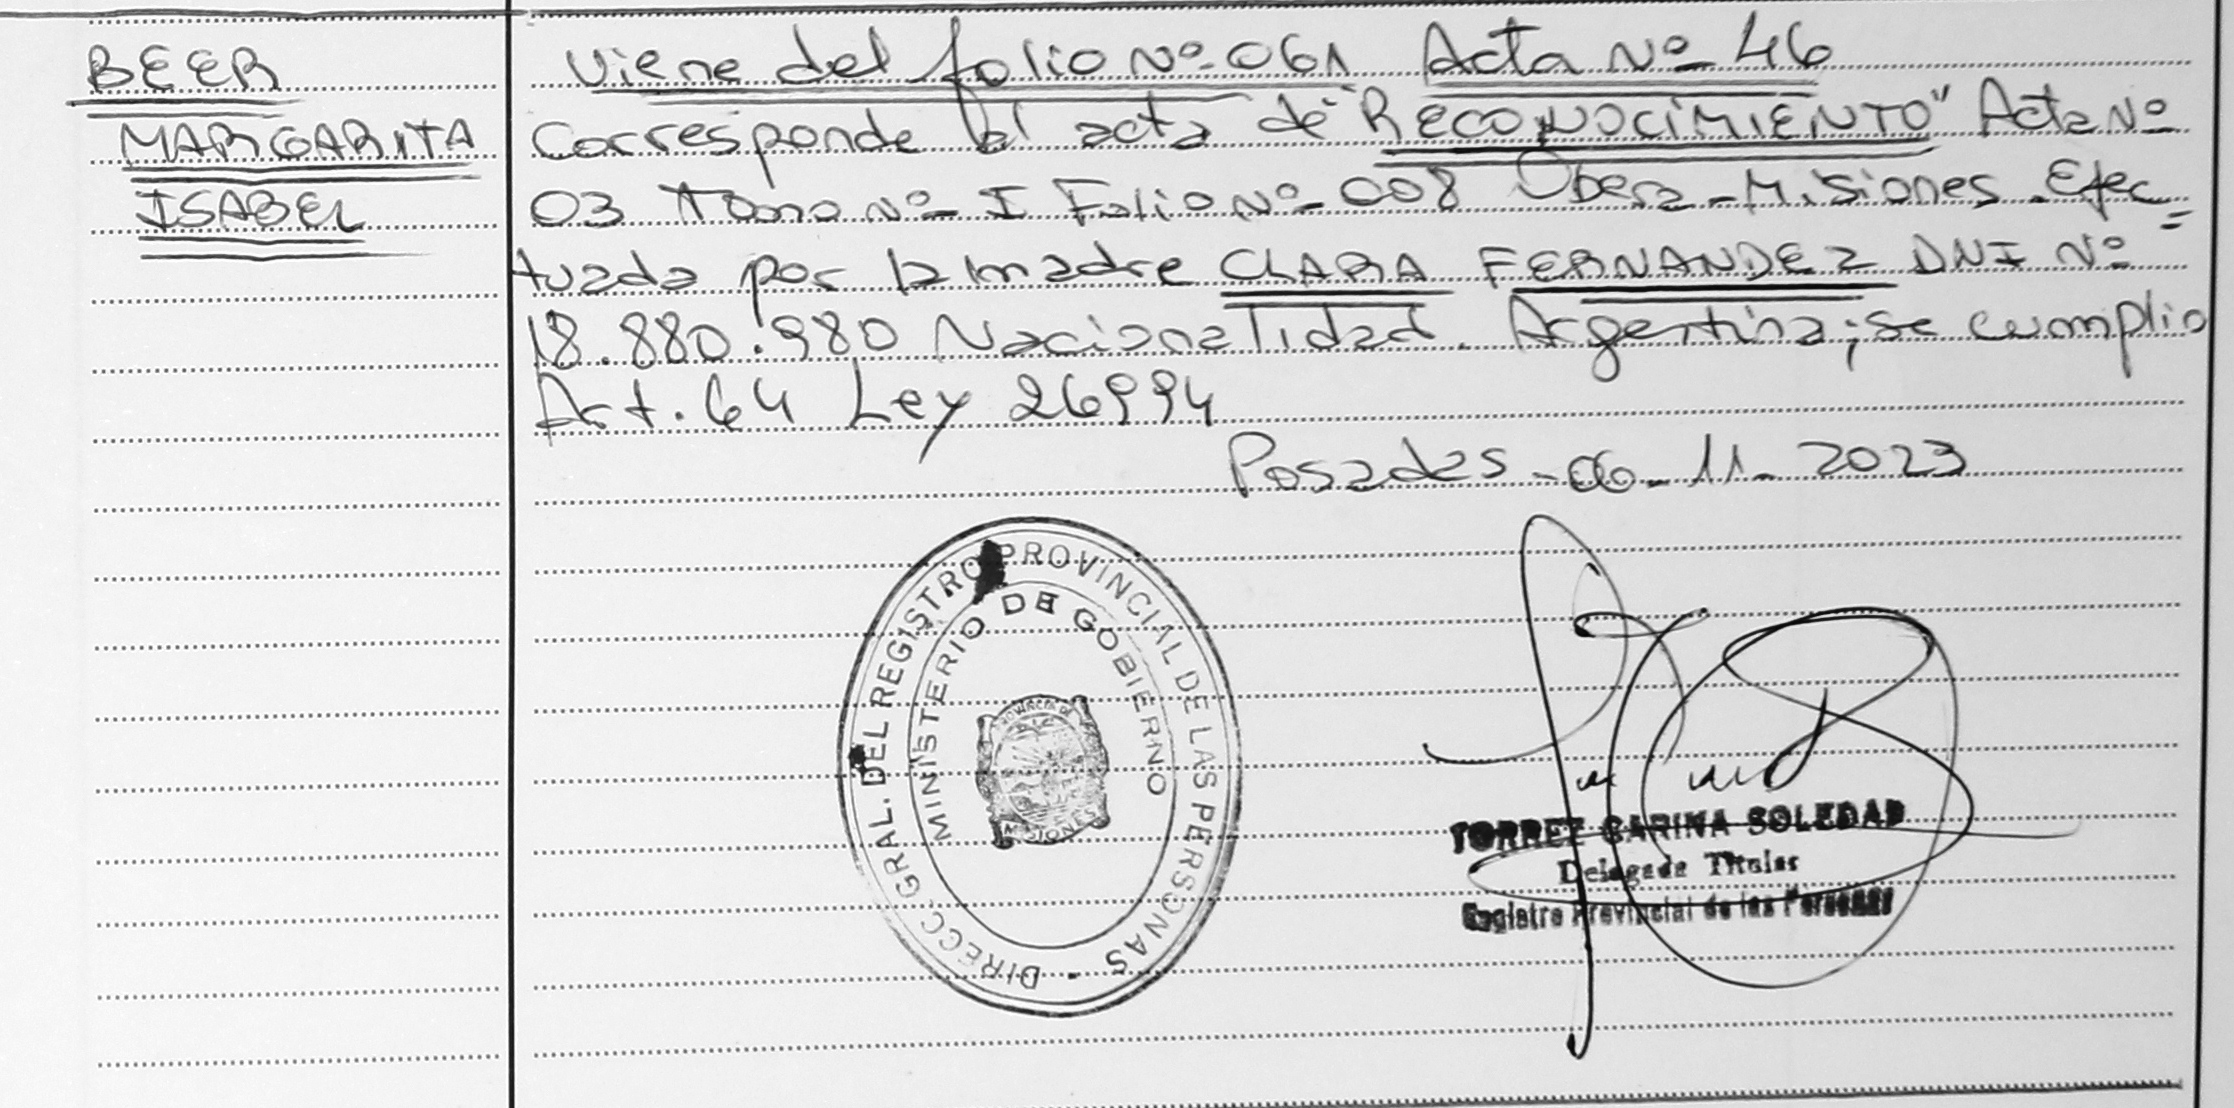 BEER
MARGARITA
ISABEL
Viene del folio Nº 061 Acta Nº 46
Corresponde al acta de "RECONOCIMIENTO" Acta Nº
03 Tomo Nº I Folio Nº 008 Obera - Misiones. Efec=
tuada por la madre CLARA FERNANDEZ DNI Nº
18.880.980 Nacionalidad. Argentina; se cumplio
Art. 64 Ley 26994
Posadas - 06 - 11 - 2023
DIRECC. GRAL. DEL REGISTRO PROVINCIAL DE LAS PERSONAS -
MINISTERIO DE GOBIERNO
PROVINCIA DE
MISIONES
TORREZ CARINA SOLEDAD
Delegada Titular
Registro Provincial de las Personas